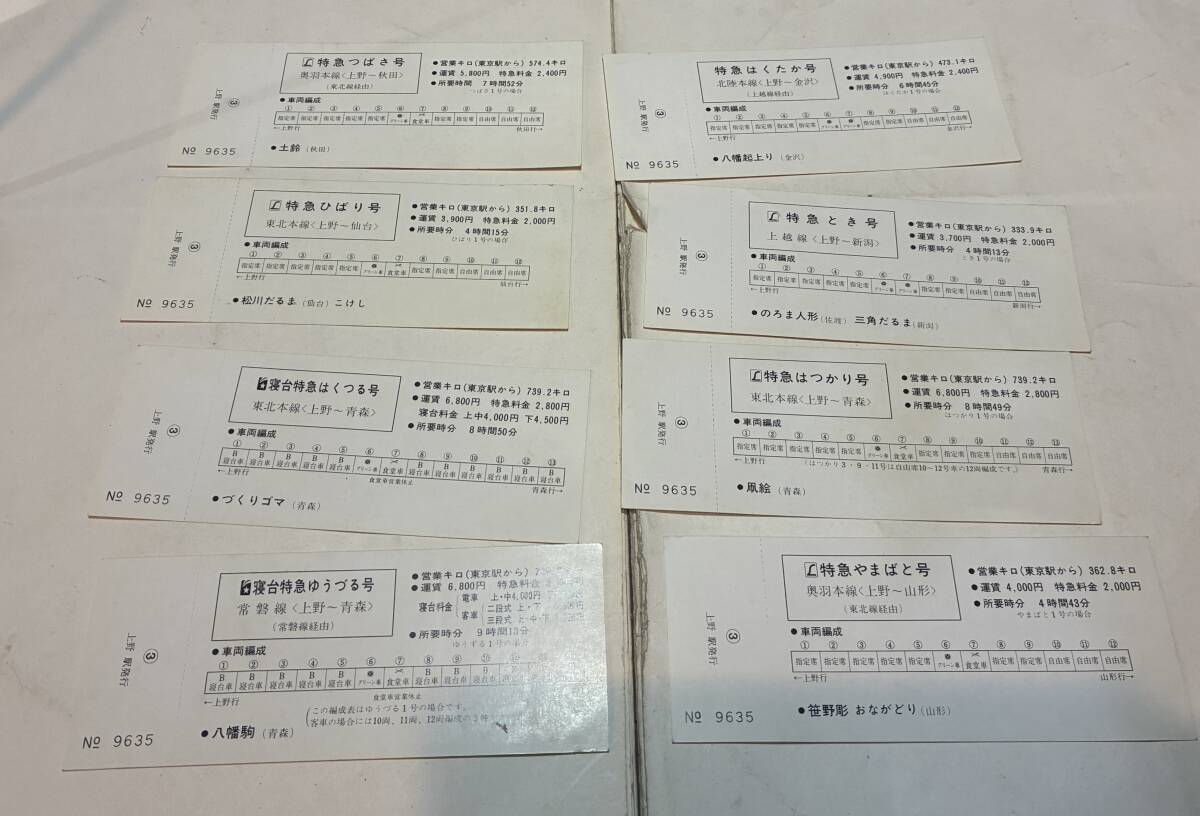 特急つばさ号
奥羽本線〈上野～秋田〉
(東北線経由)
●営業キロ(東京駅から) 574.4キロ
●運賃 5,800円 特急料金 2,400円
●所要時間 7時間52分
つばさ1号の場合
●車両編成
① ② ③ ④ ⑤ ⑥ ⑦ ⑧ ⑨ ⑩ ⑪ ⑫
指定席 指定席 指定席 指定席 指定席 グリーン車 食堂車 指定席 指定席 自由席 自由席 自由席
←上野行 秋田行→
●土鈴(秋田)
上野駅発行
③
№ 9635
特急はくたか号
北陸本線〈上野～金沢〉
(上越線経由)
●営業キロ(東京駅から) 473.1キロ
●運賃 4,900円 特急料金 2,400円
●所要時分 6時間45分
はくたか1号の場合
●車両編成
① ② ③ ④ ⑤ ⑥ ⑦ ⑧ ⑨ ⑩ ⑪ ⑫
指定席 指定席 指定席 指定席 指定席 グリーン車 グリーン車 指定席 指定席 自由席 自由席 自由席
←上野行 金沢行→
●八幡起上り(金沢)
上野駅発行
③
№ 9635
特急ひばり号
東北本線〈上野～仙台〉
●営業キロ(東京駅から) 351.8キロ
●運賃 3,900円 特急料金 2,000円
●所要時分 4時間15分
ひばり1号の場合
●車両編成
① ② ③ ④ ⑤ ⑥ ⑦ ⑧ ⑨ ⑩ ⑪ ⑫
指定席 指定席 指定席 指定席 指定席 グリーン車 食堂車 指定席 指定席 自由席 自由席 自由席
←上野行 仙台行→
●松川だるま(仙台) こけし
上野駅発行
③
№ 9635
特急とき号
上越線〈上野～新潟〉
●営業キロ(東京駅から) 333.9キロ
●運賃 3,700円 特急料金 2,000円
●所要時分 4時間13分
とき1号の場合
●車両編成
① ② ③ ④ ⑤ ⑥ ⑦ ⑧ ⑨ ⑩ ⑪ ⑫
指定席 指定席 指定席 指定席 指定席 グリーン車 グリーン車 指定席 指定席 自由席 自由席 自由席
←上野行 新潟行→
●のろま人形(佐渡) 三角だるま(新潟)
上野駅発行
③
№ 9635
寝台特急はくつる号
東北本線〈上野～青森〉
●営業キロ(東京駅から) 739.2キロ
●運賃 6,800円 特急料金 2,800円
寝台料金 上中4,000円 下4,500円
●所要時分 8時間50分
●車両編成
① ② ③ ④ ⑤ ⑥ ⑦ ⑧ ⑨ ⑩ ⑪ ⑫ ⑬
B寝台車 B寝台車 B寝台車 B寝台車 B寝台車 グリーン車 食堂車 B寝台車 B寝台車 B寝台車 B寝台車 B寝台車 B寝台車
←上野行 食堂車営業休止 青森行→
●づくりゴマ(青森)
上野駅発行
③
№ 9635
特急はつかり号
東北本線〈上野～青森〉
●営業キロ(東京駅から) 739.2キロ
●運賃 6,800円 特急料金 2,800円
●所要時分 8時間49分
はつかり1号の場合
●車両編成
① ② ③ ④ ⑤ ⑥ ⑦ ⑧ ⑨ ⑩ ⑪ ⑫ ⑬
指定席 指定席 指定席 指定席 指定席 グリーン車 食堂車 指定席 指定席 指定席 自由席 自由席 自由席
←上野行 (はつかり3・9・11号は自由席10～12号車の12両編成です。) 青森行→
●凧絵(青森)
上野駅発行
③
№ 9635
寝台特急ゆうづる号
常磐線〈上野～青森〉
(常磐線経由)
●営業キロ(東京駅から)
●運賃 6,800円 特急料金
寝台料金 電車 上・中4,000円 下
客車 二段式 上・下
三段式 上・中・下
●所要時分 9時間13分
ゆうづる1号の場合
●車両編成
① ② ③ ④ ⑤ ⑥ ⑦ ⑧ ⑨ ⑩ ⑪
B寝台車 B寝台車 B寝台車 B寝台車 B寝台車 グリーン車 食堂車 B寝台車 B寝台車 B寝台車
←上野行 食堂車営業休止
(この編成表はゆうづる1号の場合です。
客車の場合には10両、11両、12両編成の3種
●八幡駒(青森)
上野駅発行
③
№ 9635
特急やまばと号
奥羽本線〈上野～山形〉
(東北線経由)
●営業キロ(東京駅から) 362.8キロ
●運賃 4,000円 特急料金 2,000円
●所要時分 4時間43分
やまばと1号の場合
●車両編成
① ② ③ ④ ⑤ ⑥ ⑦ ⑧ ⑨ ⑩ ⑪ ⑫
指定席 指定席 指定席 指定席 指定席 グリーン車 食堂車 指定席 指定席 自由席 自由席 自由席
←上野行 山形行→
●笹野彫 おながどり(山形)
上野駅発行
③
№ 9635